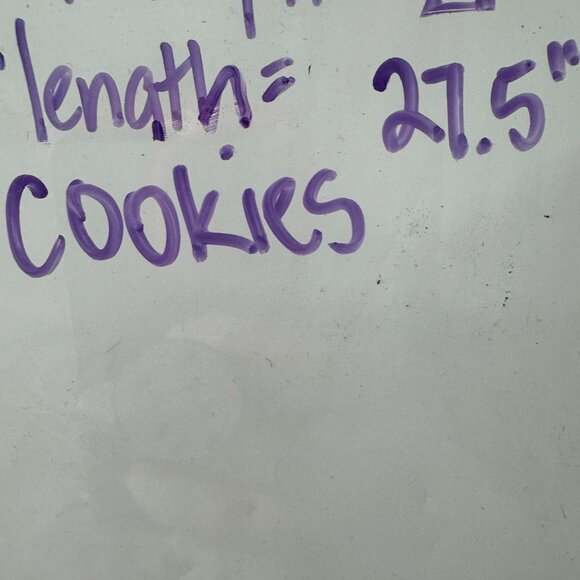 length= 27.5"
cookies